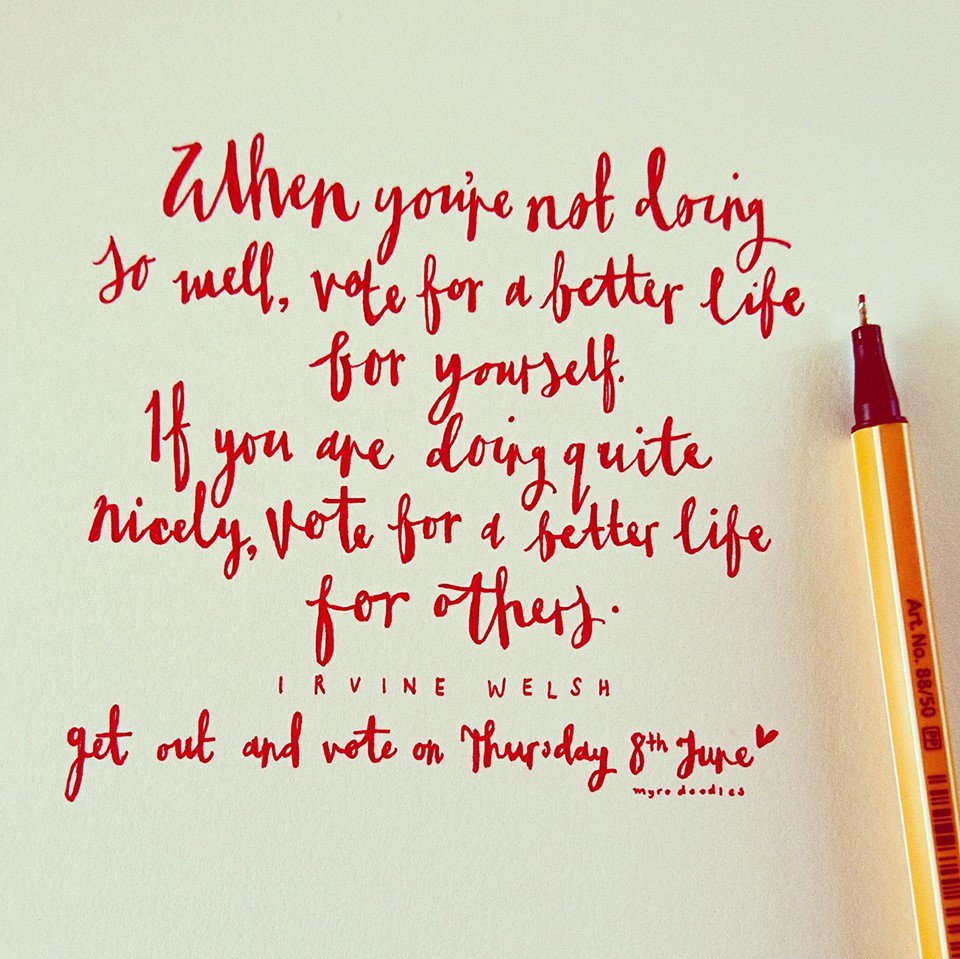 When you're not doing
so well, vote for a better life
for yourself.
If you are doing quite
nicely, vote for a better life
for others.
IRVINE WELSH
get out and vote on Thursday 8th June
myrodoodles
Art. No. 88/50 PP